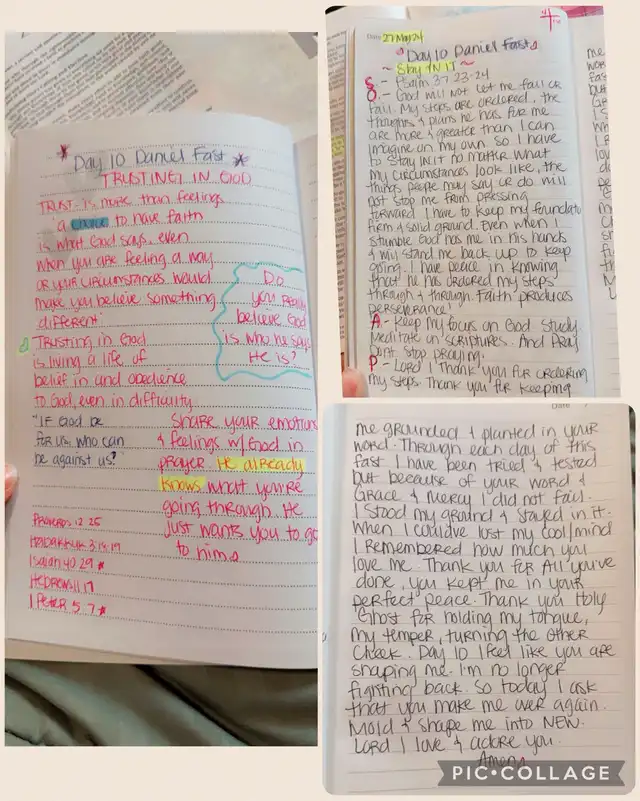 * Day 10 Daniel Fast *
TRUSTING IN GOD
TRUST is more than feelings
a choice to have faith
is what God says, even
when you are feeling a way
or your circumstances would
make you believe something
different
Trusting in God
is living a life of
belief in and obedience
to God, even in difficulty
"IF God be
for us, who can
be against us?"
Do
you really
believe God
is who he says
He is?
Share your emotions
& feelings w/ God in
prayer. He already
knows what you're
going through. He
Just wants you to go
to him.
Proverbs 12 25
Habakkuk 3:17-19
Isaiah 40 29 *
Hebrews 11 1
1 Peter 5. 7 *
Date 27 May 24
Day 10 Daniel Fast
~ Stay IN IT ~
S - Psalm 37 23-24
O - God will not let me fall or
fail. My steps are ordered, the
thoughts & plans he has for me
are more & greater than I can
imagine on my own so I have
to stay in it no matter what
my circumstances look like, the
things people may say or do will
not stop me from pressing
forward I have to keep my foundatio
firm & solid ground. Even when I
stumble God has me in his hands
& will stand me back up to keep
going. I have peace in knowing
that he has ordered my steps
through & through. Faith produces
perseverance!
A - Keep my focus on God study.
Meditate on scriptures. And Pray
Dont stop praying.
P - Lord I thank you for ordering
my steps. Thank you for keeping
Date
me grounded & planted in your
word. Through each day of this
fast I have been tried & tested
but because of your word &
Grace & Mercy I did not fail.
I stood my ground & stayed in it.
When I could've lost my cool/mind
I Remembered how much you
love me. Thank you for All you've
done, you kept me in your
perfect peace. Thank you Holy
Ghost for holding my tongue,
my temper, turning the other
Cheek. Day 10 I feel like you are
shaping me. I'm no longer
fighting back. So today I ask
that you make me over again.
Mold & shape me into NEW.
Lord I love & adore you.
Amen
PIC•COLLAGE